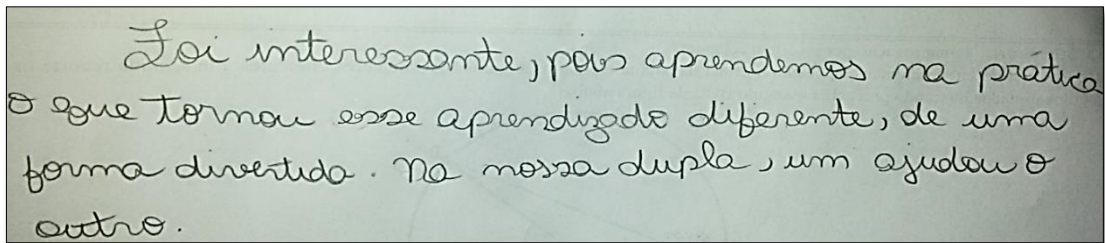 Foi interessante, pois aprendemos na prática
o que tornou esse aprendizado diferente, de uma
forma divertida. Na nossa dupla, um ajudou o
outro.